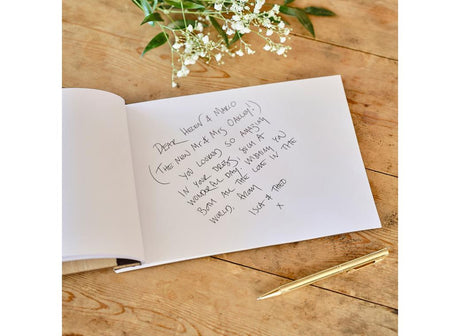 DEAR HELEN & MARIO
(THE NEW MR & MRS OAKLEY!)
YOU LOOKED SO AMAZING
IN YOUR DRESS. SUCH A
WONDERFUL DAY. WISHING YOU
BOTH ALL THE LOVE IN THE
WORLD.
ISLA & THEO
X